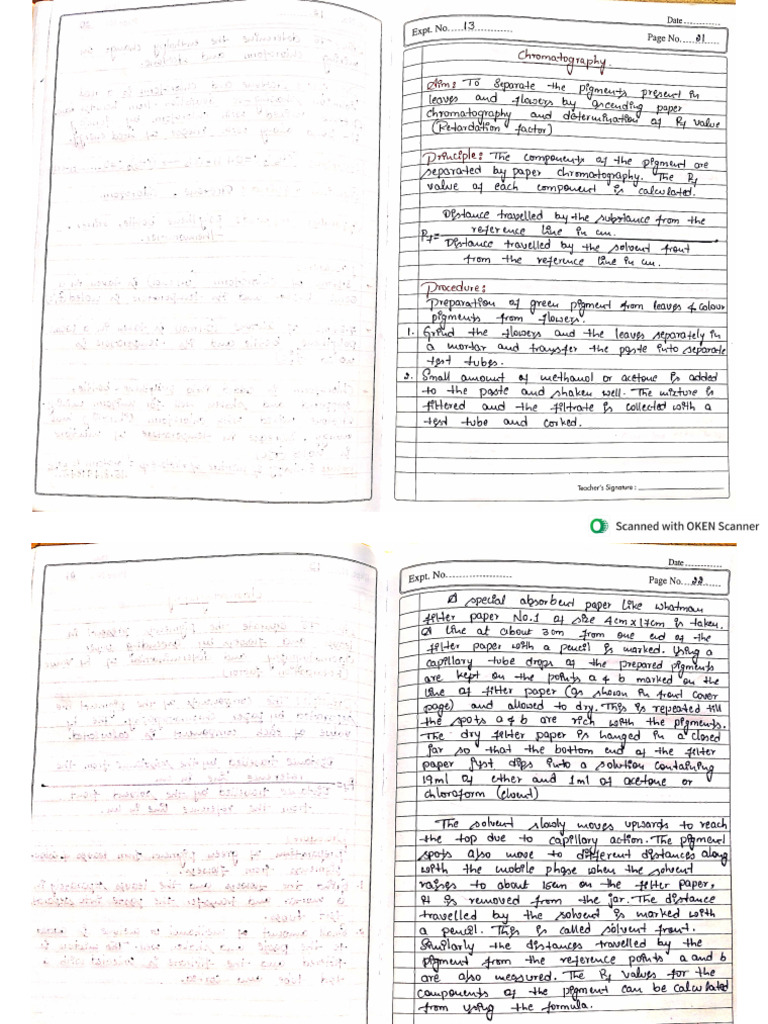 Date ............
Expt. No. ....13............
Page No. ...21.....
Chromatography.
Aim: To separate the pigments present in
leaves and flowers by ascending paper
chromatography and determination of Rf value
(Retardation factor)
Principle: The components of the pigment are
separated by paper chromatography. The Rf
value of each component is calculated.
Distance travelled by the substance from the
reference line in cm.
Rf =
Distance travelled by the solvent front
from the reference line in cm.
Procedure:
Preparation of green pigment from leaves & colour
pigments from flowers.
1. Grind the flowers and the leaves separately in
a mortar and transfer the paste into separate
test tubes.
2. Small amount of methanol or acetone is added
to the paste and shaken well. The mixture is
filtered and the filtrate is collected with a
test tube and corked.
Teacher's Signature :
Scanned with OKEN Scanner
Date ............
Expt. No. ....................
Page No. ...22.....
A special absorbent paper like whatman
filter paper No.1 of size 4cm x 17cm is taken.
A line at about 3cm from one end of the
filter paper with a pencil is marked. Using a
capillary tube drops of the prepared pigments
are kept on the points a & b marked on the
line of filter paper (as shown in front cover
page) and allowed to dry. This is repeated till
the spots a & b are rich with the pigments.
The dry filter paper is hanged in a closed
jar so that the bottom end of the filter
paper just dips into a solution containing
19ml of ether and 1ml of acetone or
chloroform (eluent)
The solvent slowly moves upwards to reach
the top due to capillary action. The pigment
spots also move to different distances along
with the mobile phase when the solvent
raises to about 15cm on the filter paper,
it is removed from the jar. The distance
travelled by the solvent is marked with
a pencil. This is called solvent front.
Similarly the distances travelled by the
pigment from the reference points a and b
are also measured. The Rf values for the
components of the pigment can be calculated
from using the formula.